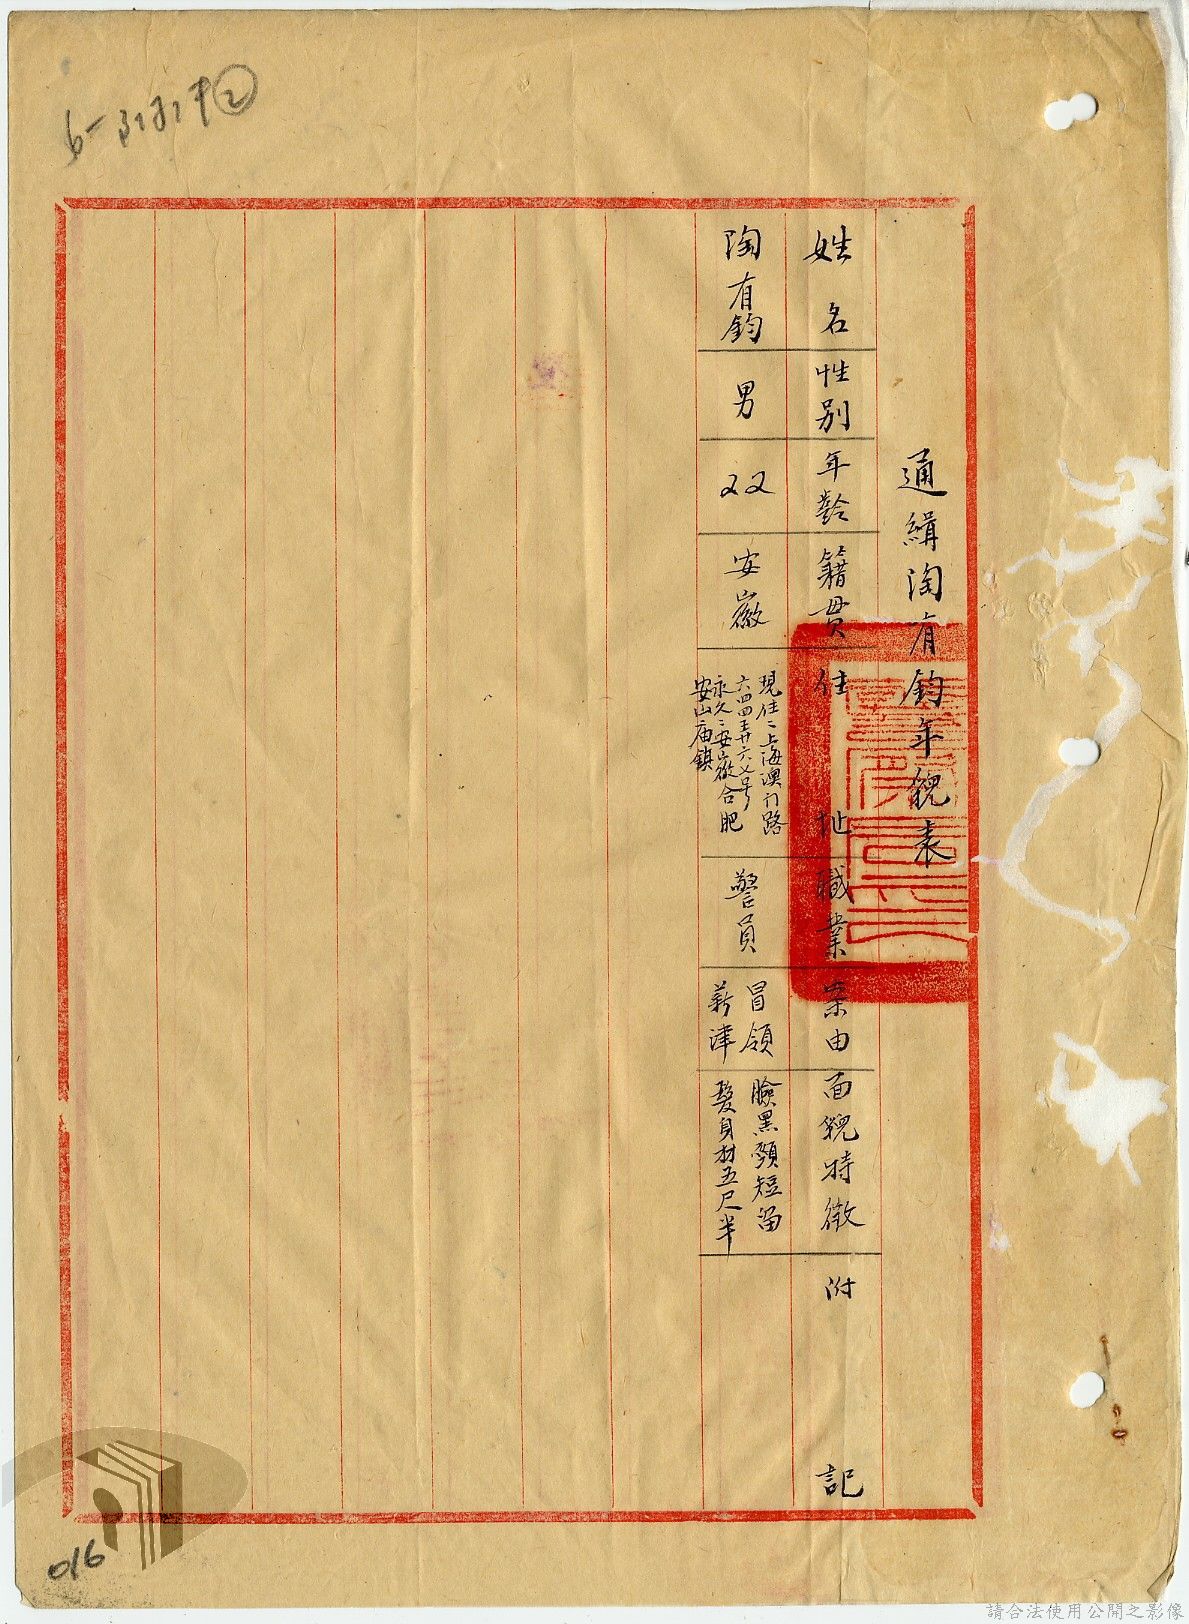 通緝陶有鈞年貌表
姓名
性別
年齡
籍貫
住址
職業
案由
面貌特徵
附記
陶有鈞
男
安徽
現住:上海澳门路
六四四弄廿六号
永久:安徽合肥
安山庙鎮
警員
冒領
薪津
臉黑頸短留
髮身材五尺半
016
請合法使用公開之影像